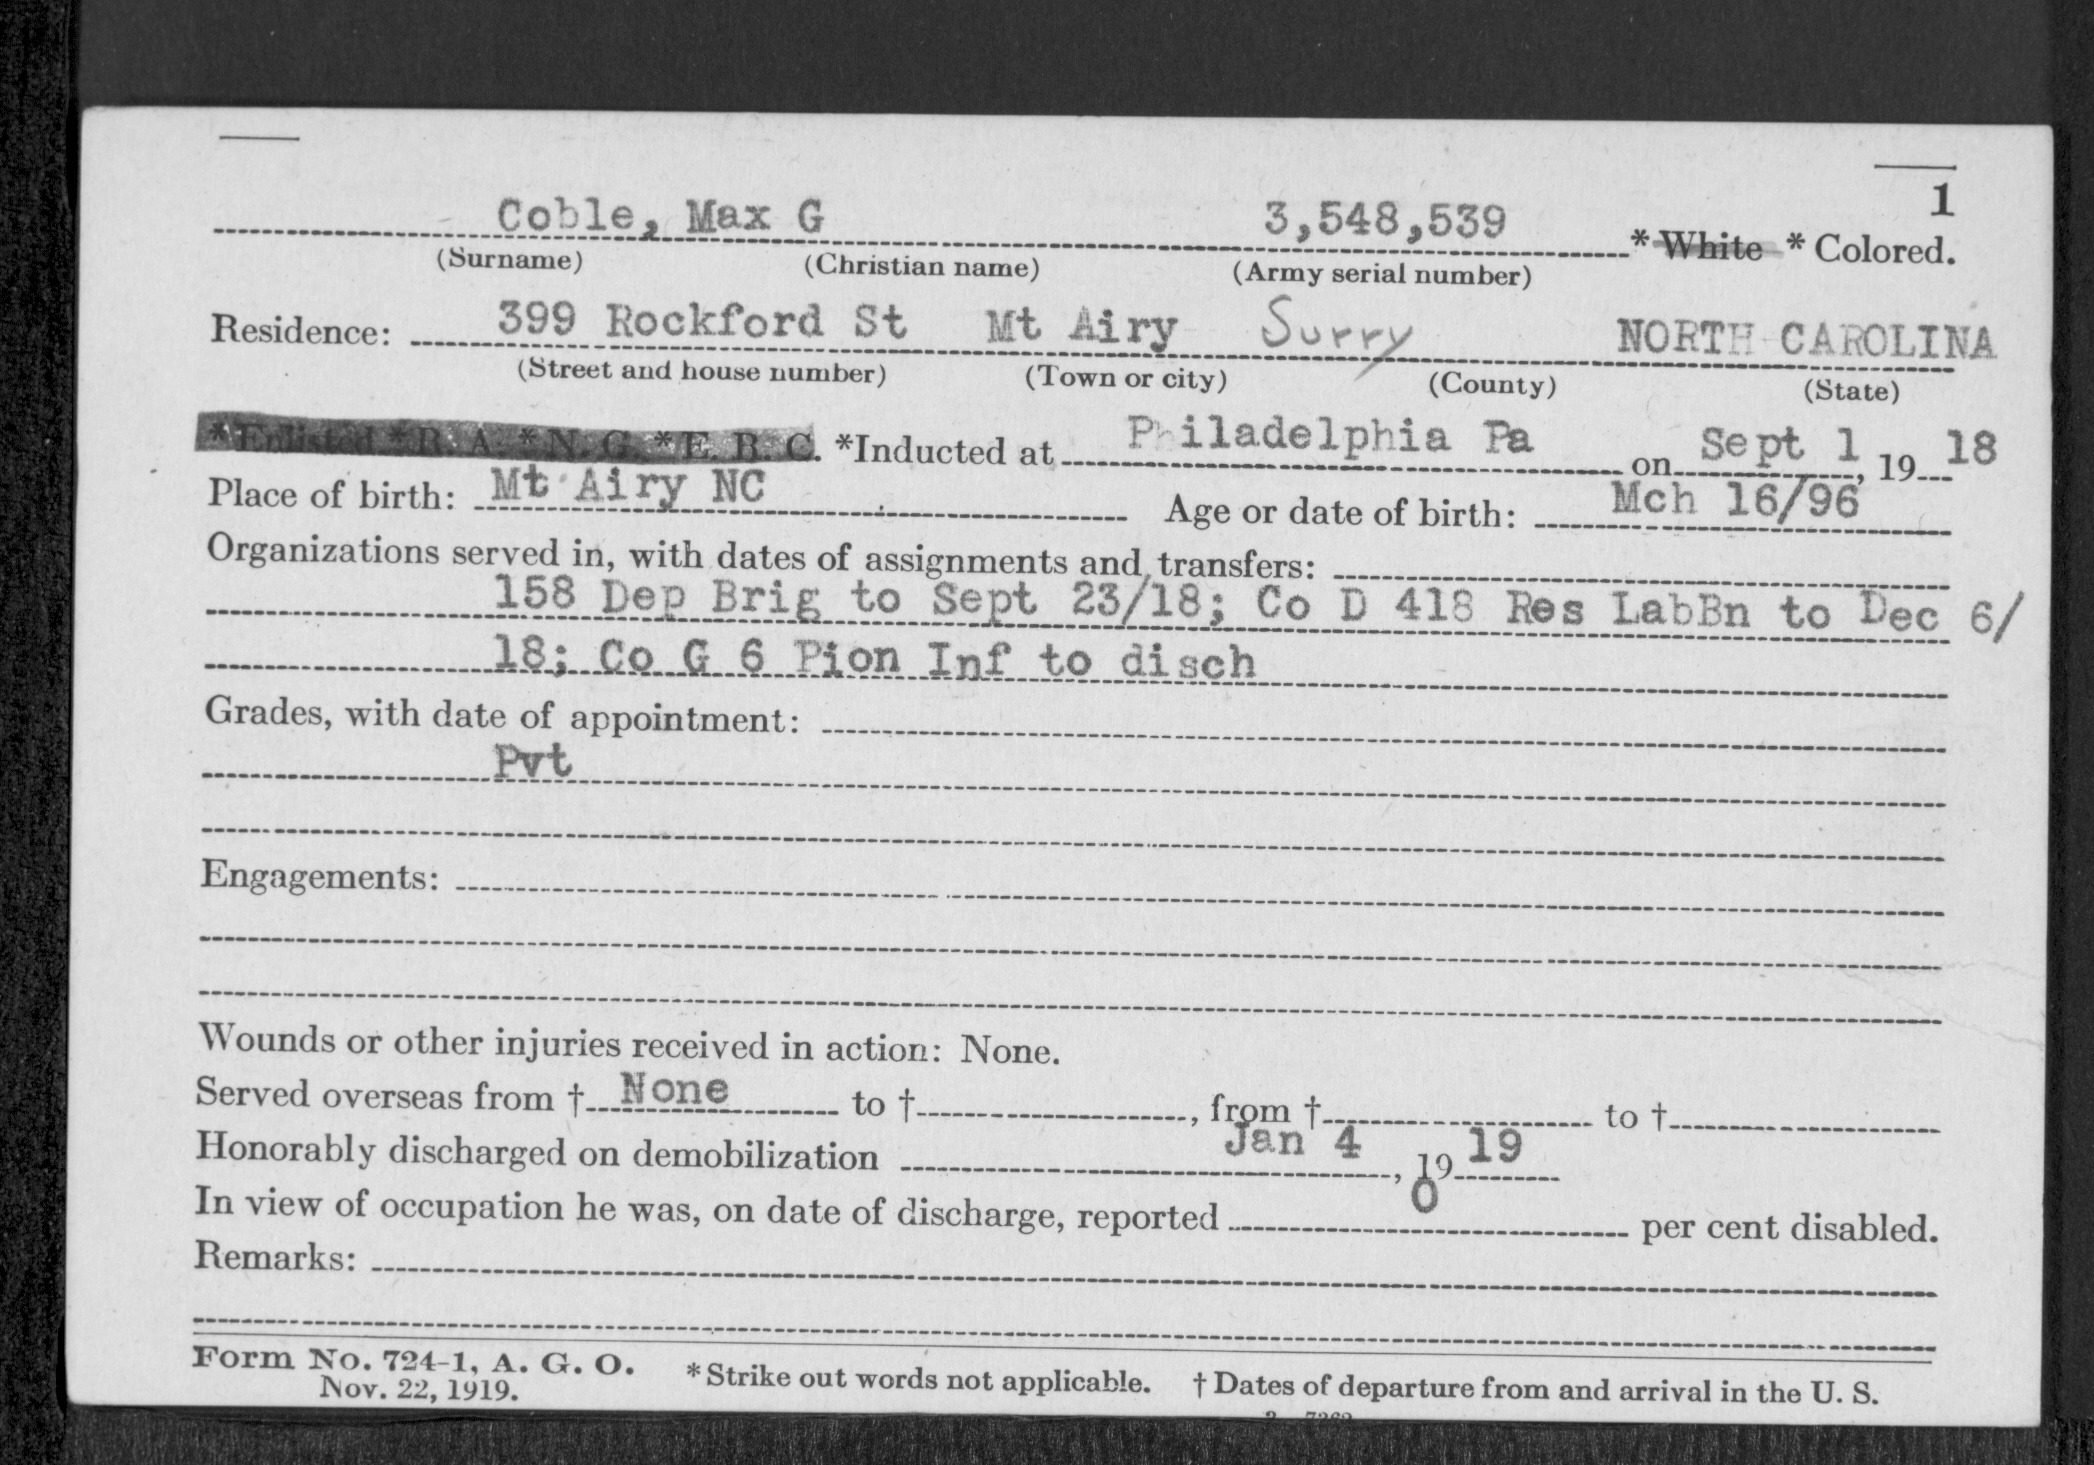 1
Coble, Max G 3,548,539 *White *Colored.
(Surname) (Christian name) (Army serial number)
Residence: 399 Rockford St Mt Airy Surry NORTH CAROLINA
(Street and house number) (Town or city) (County) (State)
*Enlisted *R. A. *N. G. *E. R. C. *Inducted at Philadelphia Pa on Sept 1, 1918
Place of birth: Mt Airy NC Age or date of birth: Mch 16/96
Organizations served in, with dates of assignments and transfers:
158 Dep Brig to Sept 23/18; Co D 418 Res LabBn to Dec 6/
18; Co G 6 Pion Inf to disch
Grades, with date of appointment:
Pvt
Engagements:
Wounds or other injuries received in action: None.
Served overseas from † None to †, from † to †
Honorably discharged on demobilization Jan 4, 1919
In view of occupation he was, on date of discharge, reported 0 per cent disabled.
Remarks:
Form No. 724-1, A. G. O. *Strike out words not applicable. † Dates of departure from and arrival in the U. S.
Nov. 22, 1919.